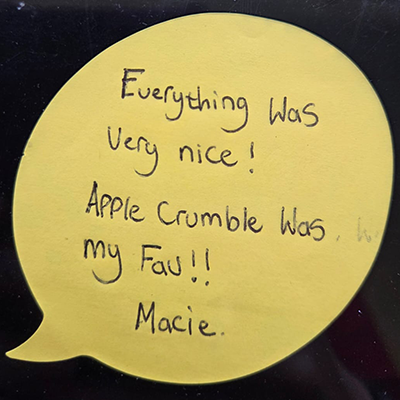 Everything Was
Very nice!
Apple Crumble Was
my Fav!!
Macie.